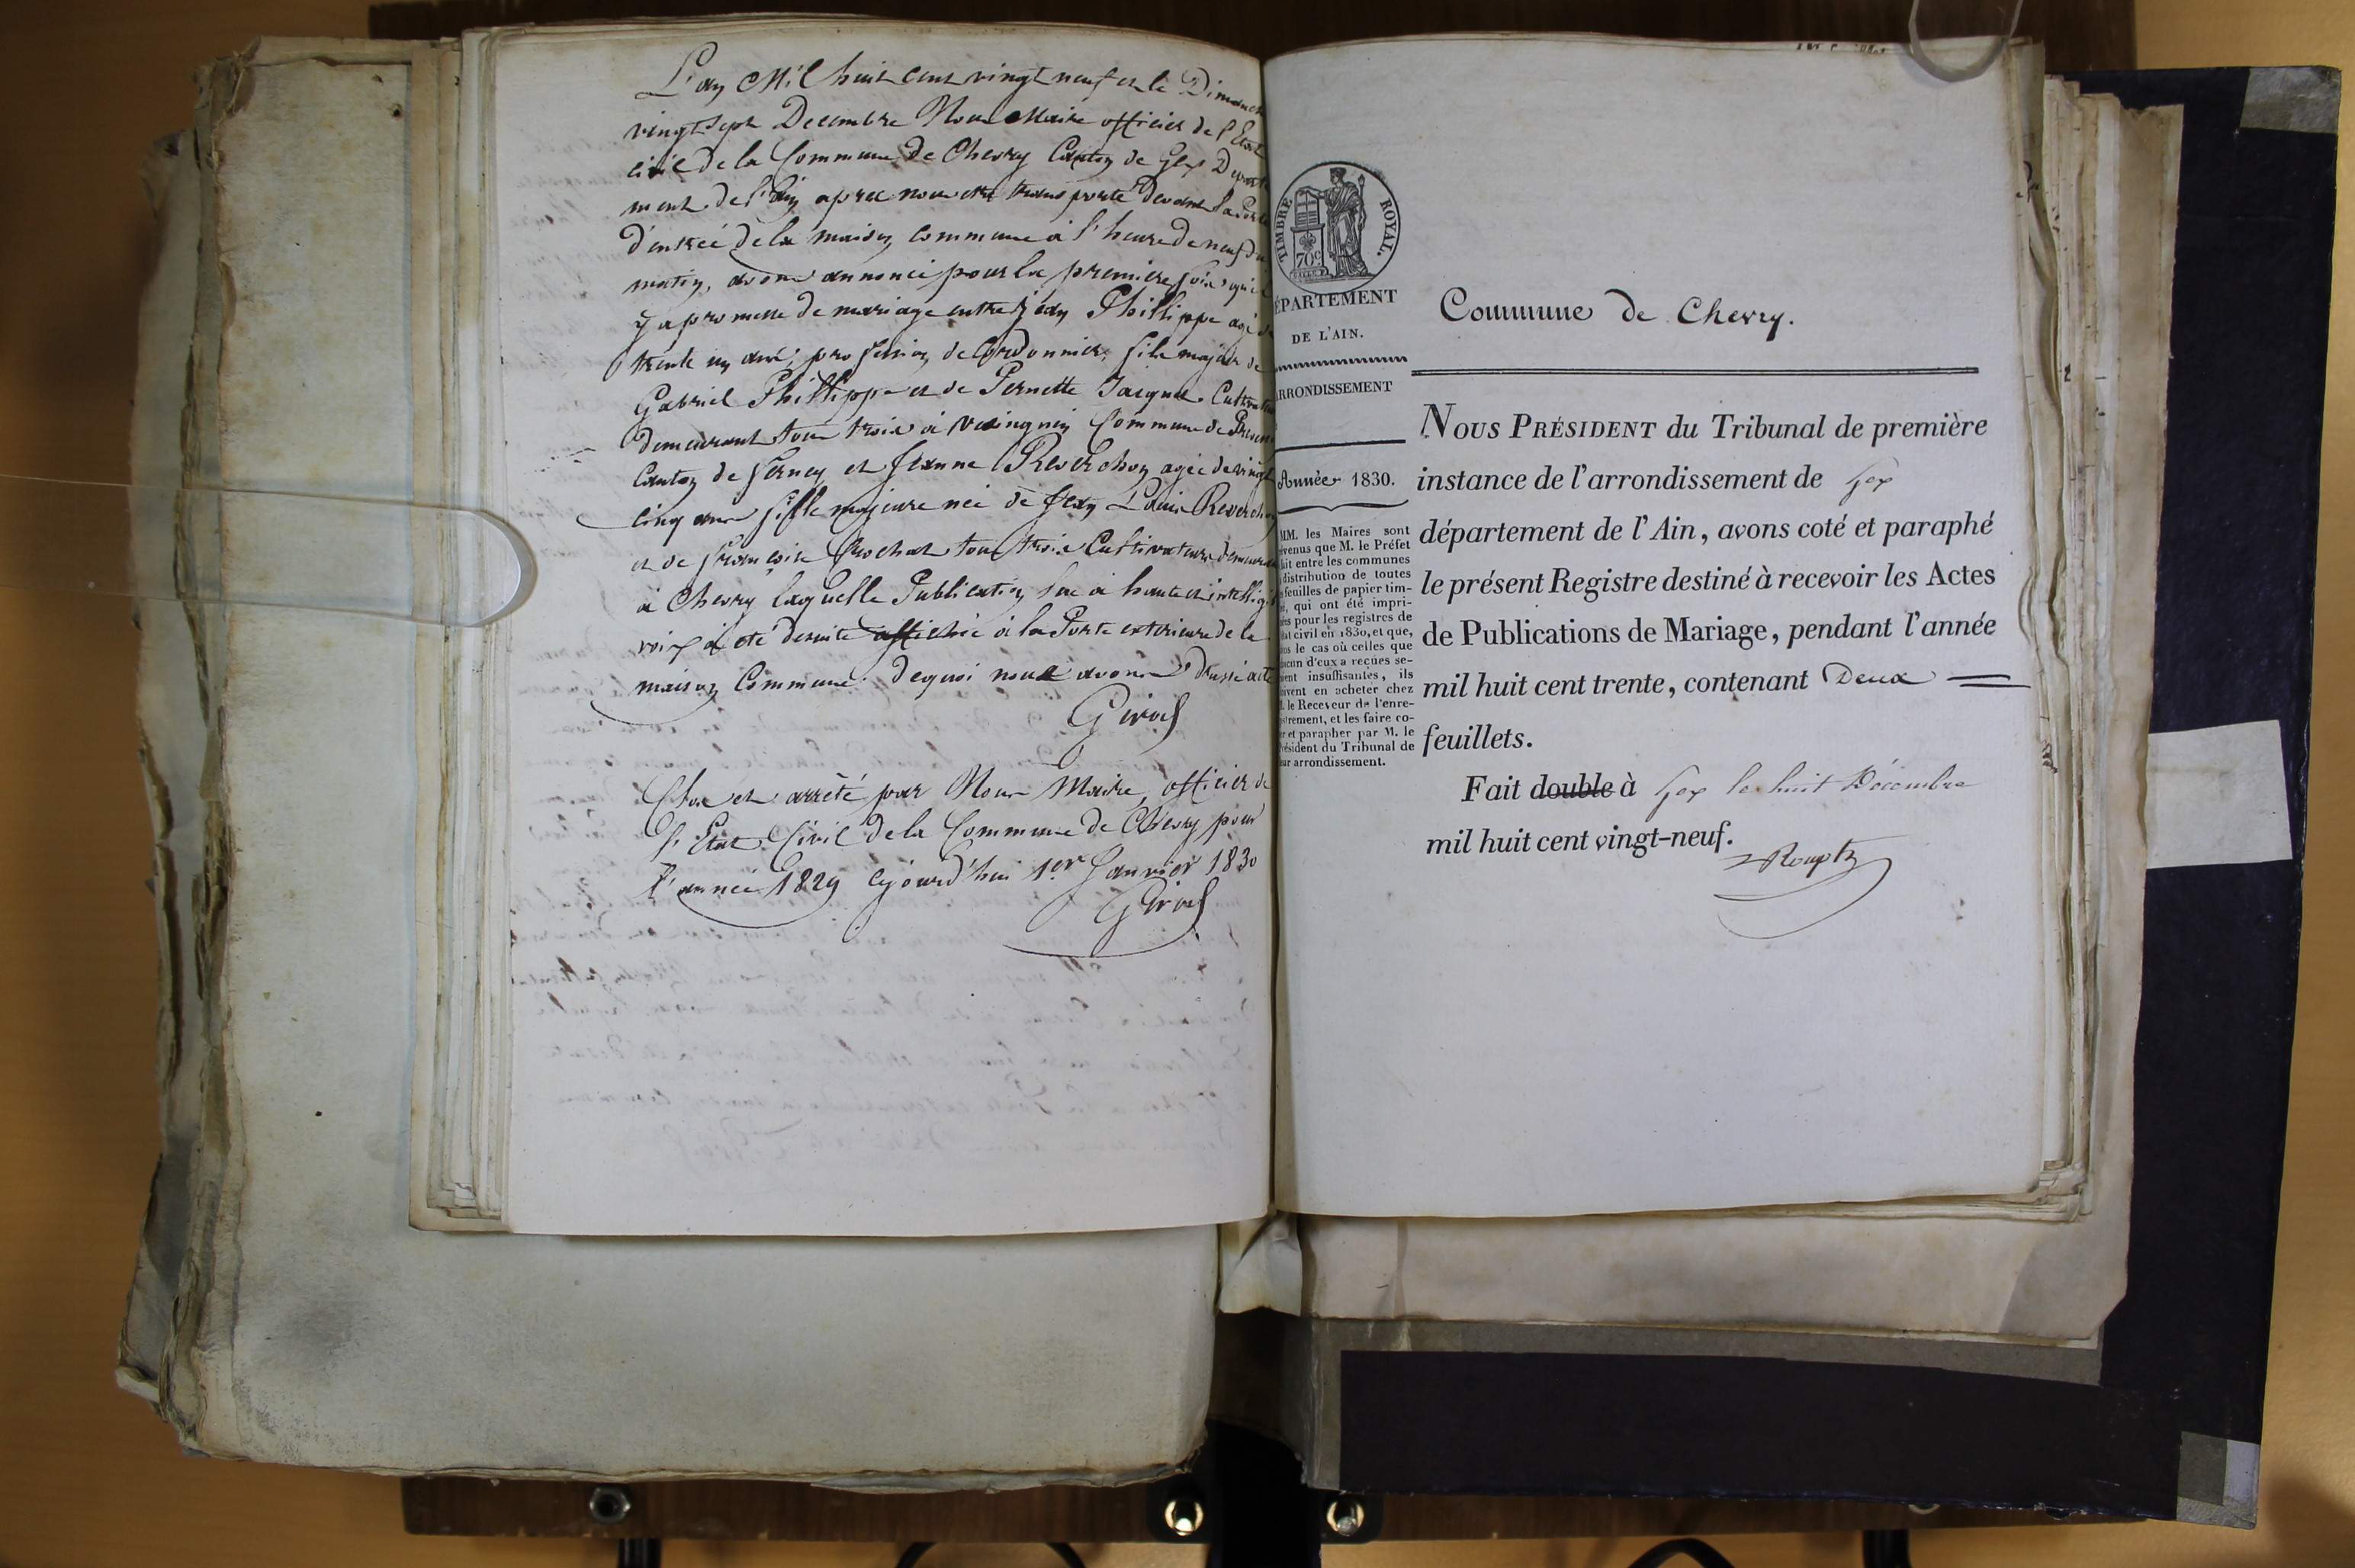 L'an Mil huit cent vingt neuf et le Dimanch
vingt sept Decembre Nous Maire officier de l'Etat
civil de la Commune de Chevry Canton de Gex Depart
ment de l'Ain apres nous etre transporté devant la Porte
d'entrée de la maison commune à l'heure de neuf du
matin, avons annoncé pour la premiere fois qu'il
y a promesse de mariage entre jean Phillippe agé de
trente un ans, profession de Cordonnier, fils majeur de
Gabriel Phillippe et de Pernette Jacques Cultivate
demeurant tous trois à Commune de
Canton de Ferney et Jeanne Reverchon agée de vingt
cinq ans fille majeure née de Jean Louis Reverchon
et de Françoise Rochat tous trois Cultivateurs demeurant
à Chevry laquelle Publication lue à haute et intelligi
voix à eté desuite affichée à la Porte exterieure de la
maison Commune. dequoi nous avons Dressé acte
Girod
Clos et arrêté par Nous Maire, officier de
l'Etat Civil de la Commune de Chevry pour
l'année 1829 cejourd'hui 1er Janvier 1830
Girod
TIMBRE ROYAL.
70c
ÉPARTEMENT
DE L'AIN.
RRONDISSEMENT
Année 1830.
MM. les Maires sont
évenus que M. le Préfet
ait entre les communes
distribution de toutes
feuilles de papier tim-
é, qui ont été impri-
ées pour les registres de
tat civil en 1830, et que,
ns le cas où celles que
acun d'eux a reçues se-
ient insuffisantes, ils
ivent en acheter chez
. le Receveur de l'enre-
strement, et les faire co-
r et parapher par M. le
résident du Tribunal de
ur arrondissement.
Commune de Chevry.
NOUS PRÉSIDENT du Tribunal de première
instance de l'arrondissement de Gex
département de l'Ain, avons coté et paraphé
le présent Registre destiné à recevoir les Actes
de Publications de Mariage, pendant l'année
mil huit cent trente, contenant Deux
feuillets.
Fait double à Gex le huit Décembre
mil huit cent vingt-neuf.